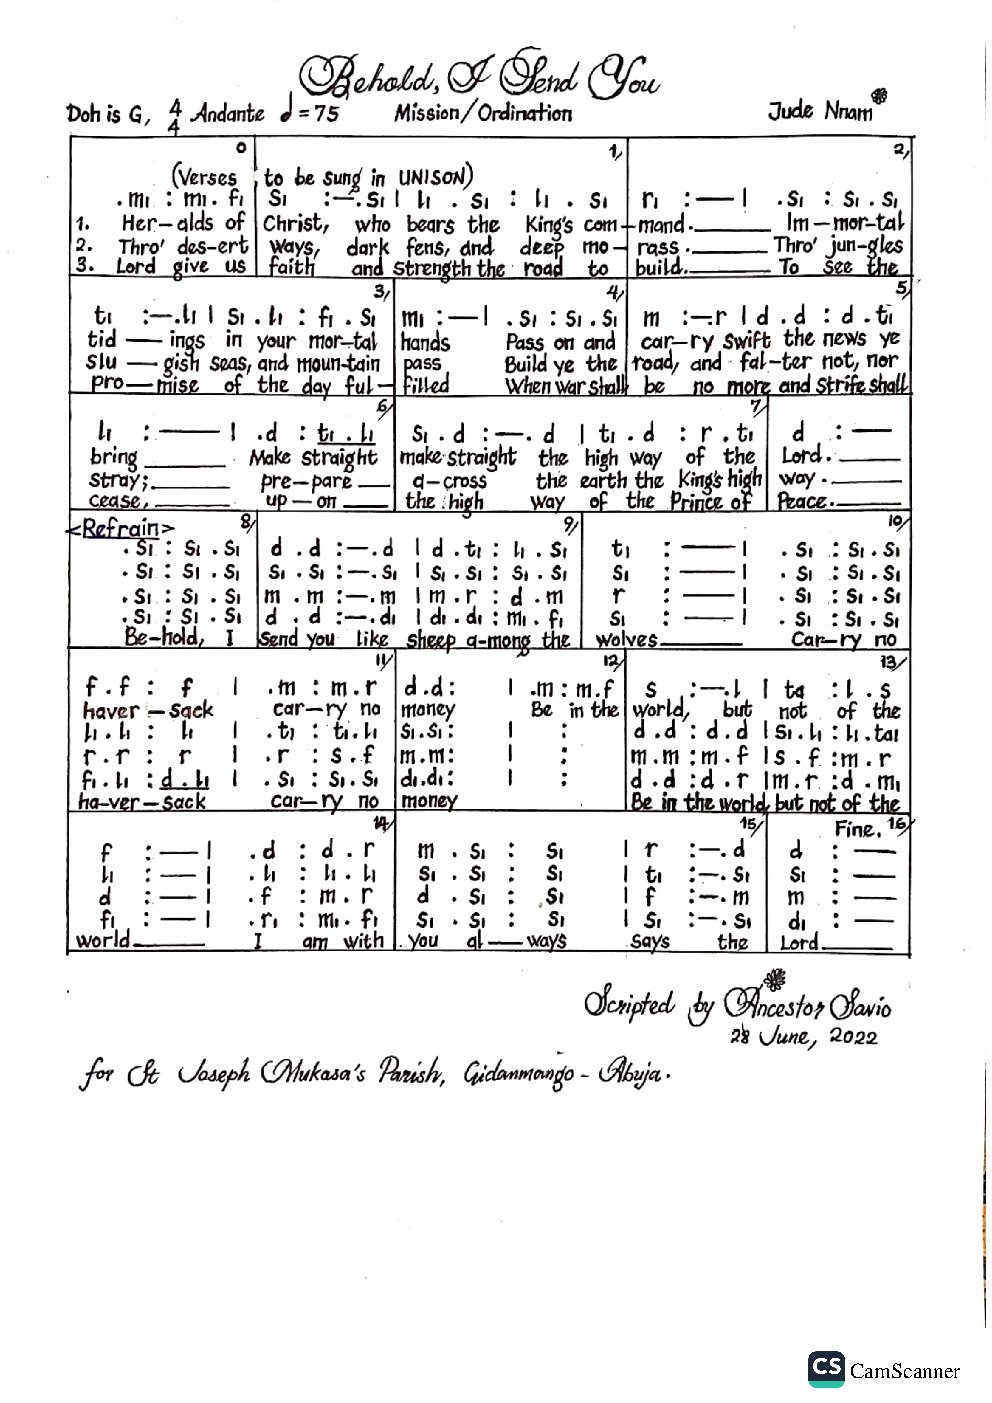 Behold, I Send You
Doh is G, 4/4 Andante ♩=75 Mission/Ordination Jude Nnam
0 1, 2,
(Verses to be sung in UNISON)
.m₁ : m₁. f₁ | s₁ :—.s₁ | l₁ . s₁ : l₁ . s₁ | r₁ :— | .s₁ : s₁ . s₁
1. Her-alds of Christ, who bears the King's com-mand.____ Im-mor-tal
2. Thro' des-ert ways, dark fens, and deep mo-rass.____ Thro' jun-gles
3. Lord give us faith and strength the road to build.____ To see the
3, 4, 5,
t₁ :—.l₁ | s₁ . l₁ : f₁ . s₁ | m₁ :— | .s₁ : s₁ . s₁ | m :—.r | d . d : d . t₁
tid — ings in your mor-tal hands Pass on and car-ry swift the news ye
slu — gish seas, and moun-tain pass Build ye the road, and fal-ter not, nor
pro — mise of the day ful-filled When war shall be no more and strife shall
6, 7,
l₁ :— | .d : t₁ . l₁ | s₁ . d :—. d | t₁ . d : r . t₁ | d :—
bring ____ Make straight make straight the high way of the Lord.____
stray;____ pre-pare ____ a-cross the earth the King's high way.____
cease,____ up-on ____ the high way of the Prince of Peace.____
<Refrain> 8, 9, 10,
. s₁ : s₁ . s₁ | d . d :—.d | d . t₁ : l₁ . s₁ | t₁ :— | . s₁ : s₁ . s₁
. s₁ : s₁ . s₁ | s₁ . s₁ :—.s₁ | s₁ . s₁ : s₁ . s₁ | s₁ :— | . s₁ : s₁ . s₁
. s₁ : s₁ . s₁ | m . m :—.m | m . r : d . m | r :— | . s₁ : s₁ . s₁
. s₁ : s₁ . s₁ | d . d :—.d₁ | d₁ . d₁ : m₁ . f₁ | s₁ :— | . s₁ : s₁ . s₁
Be-hold, I send you like sheep a-mong the wolves____ Car-ry no
11, 12, 13,
f . f : f | .m : m . r | d . d : | .m : m . f | s :—.l | ta : l . s
haver-sack car-ry no money Be in the world, but not of the
l₁ . l₁ : l₁ | .t₁ : t₁ . l₁ | s₁ . s₁ : | : | d . d : d . d | s₁ . l₁ : l₁ . ta₁
r . r : r | .r : s . f | m . m : | : | m . m : m . f | s . f : m . r
f₁ . l₁ : d . l₁ | .s₁ : s₁ . s₁ | d₁ . d₁ : | : | d . d : d . r | m . r : d . m₁
ha-ver-sack car-ry no money Be in the world, but not of the
14, 15, Fine. 16,
f :— | .d : d . r | m . s₁ : s₁ | r :—.d | d :—
l₁ :— | .l₁ : l₁ . l₁ | s₁ . s₁ : s₁ | t₁ :—.s₁ | s₁ :—
d :— | .f : m . r | d . s₁ : s₁ | f :—.m | m :—
f₁ :— | .r₁ : m₁ . f₁ | s₁ . s₁ : s₁ | s₁ :—.s₁ | d₁ :—
world____ I am with you al — ways says the Lord____
Scripted by Ancestor Savio
28 June, 2022
for St Joseph Mukasa's Parish, Gidanmango - Abuja.
CS CamScanner